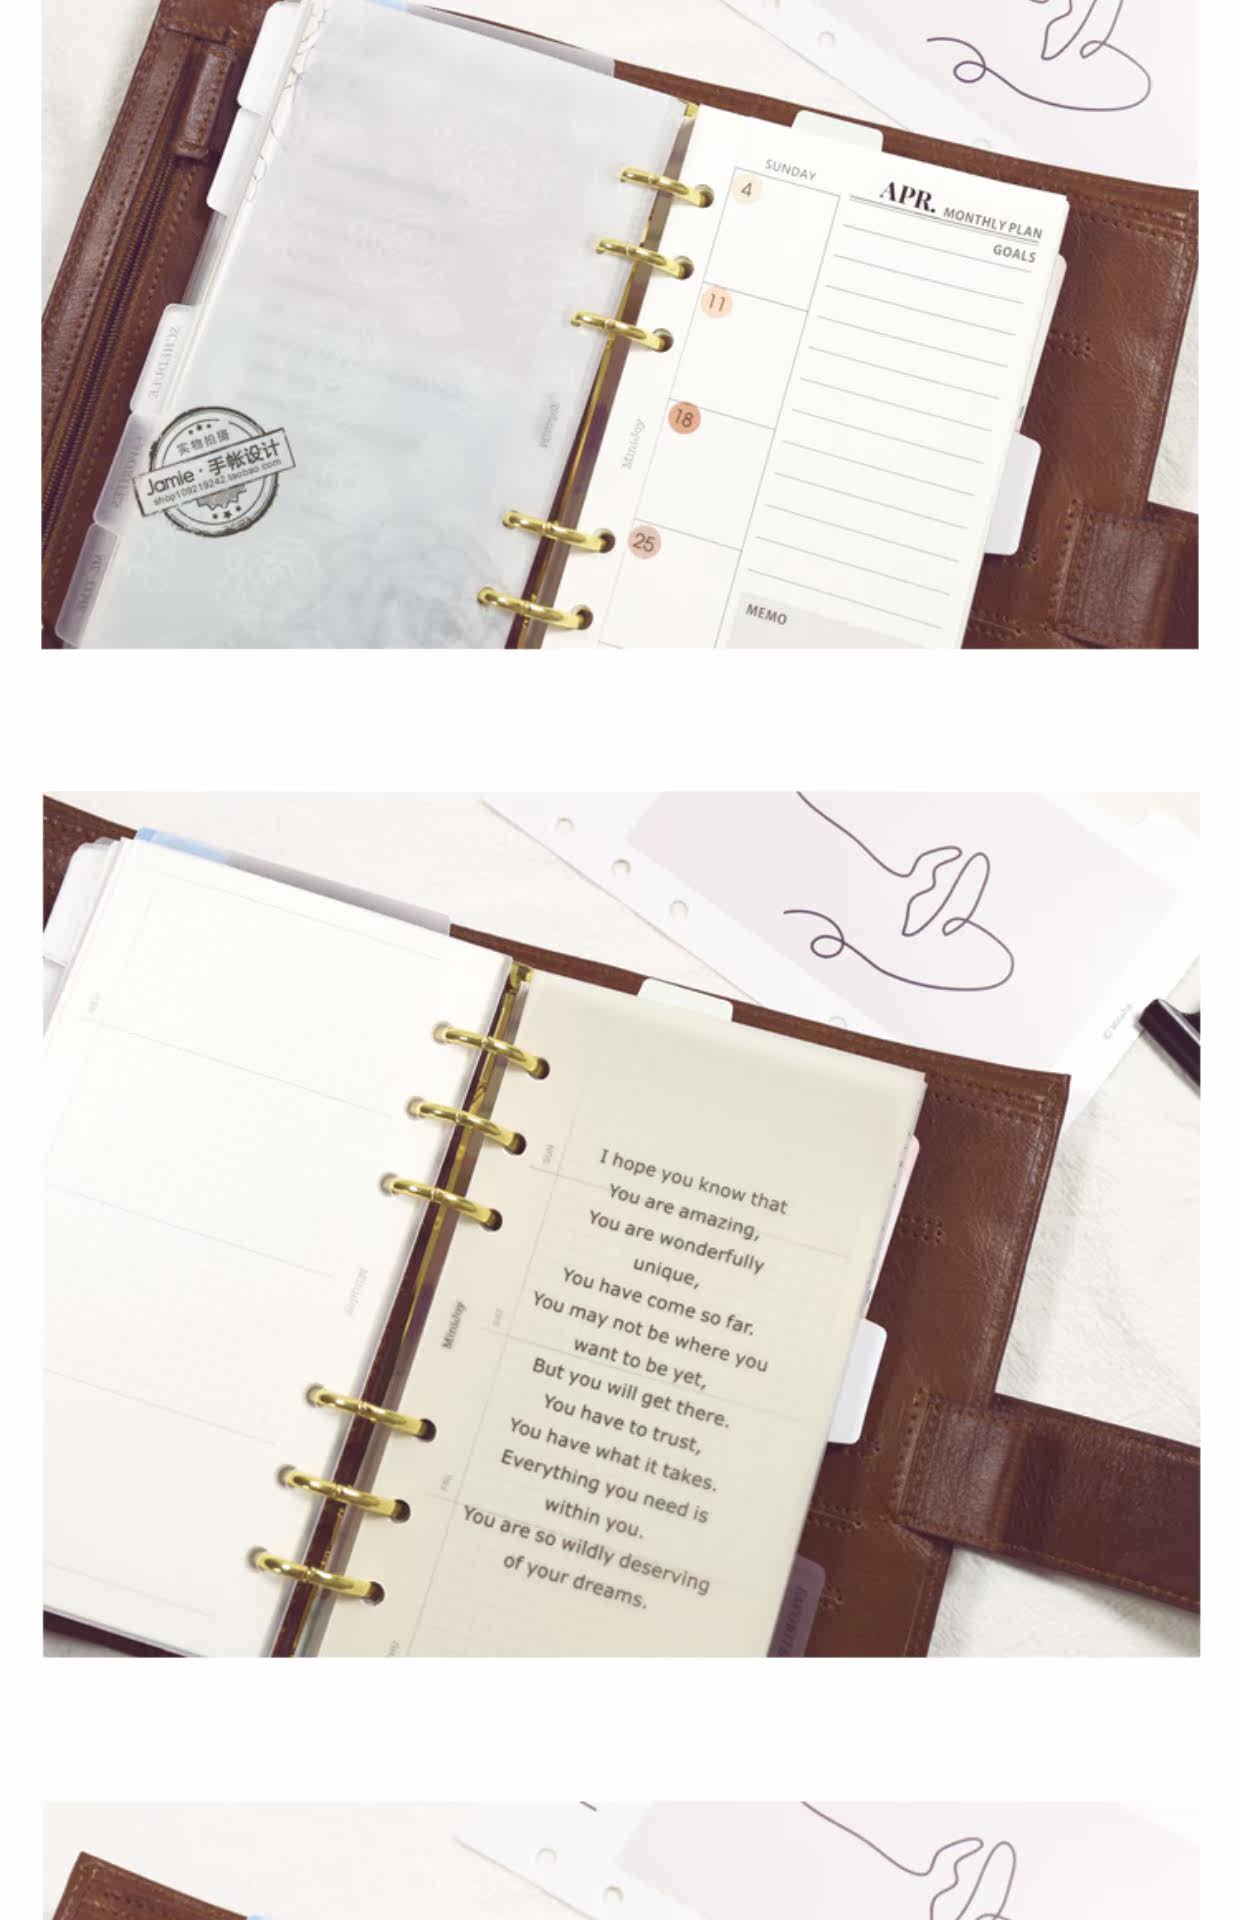 SUNDAY
APR. MONTHLY PLAN
GOALS
4
11
18
25
MEMO
MiniJoy
SCHEDULE
实物拍摄
Jamie·手帐设计
shop109219242.taobao.com
I hope you know that
You are amazing,
You are wonderfully
unique,
You have come so far.
You may not be where you
want to be yet,
But you will get there.
You have to trust,
You have what it takes.
Everything you need is
within you.
You are so wildly deserving
of your dreams.
MiniJoy
SUN
SAT
FRI